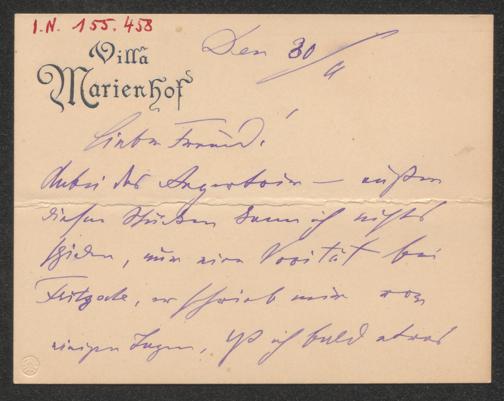 I.N. 155.458
Villa
Marienhof
Den 30/
Lieber Freund!
Anbei das — außer
diesen Stücken kann ich nichts
finden, nur eine bei
er schrieb mir vor
einigen Tagen, daß ich bald etwas